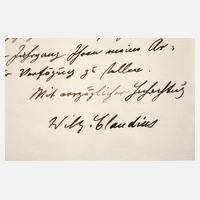 Jahrgang Ihnen meinen Ar=
Verfügung zu stellen.
Mit vorzüglicher Hochachtung
Wilh. Claudius